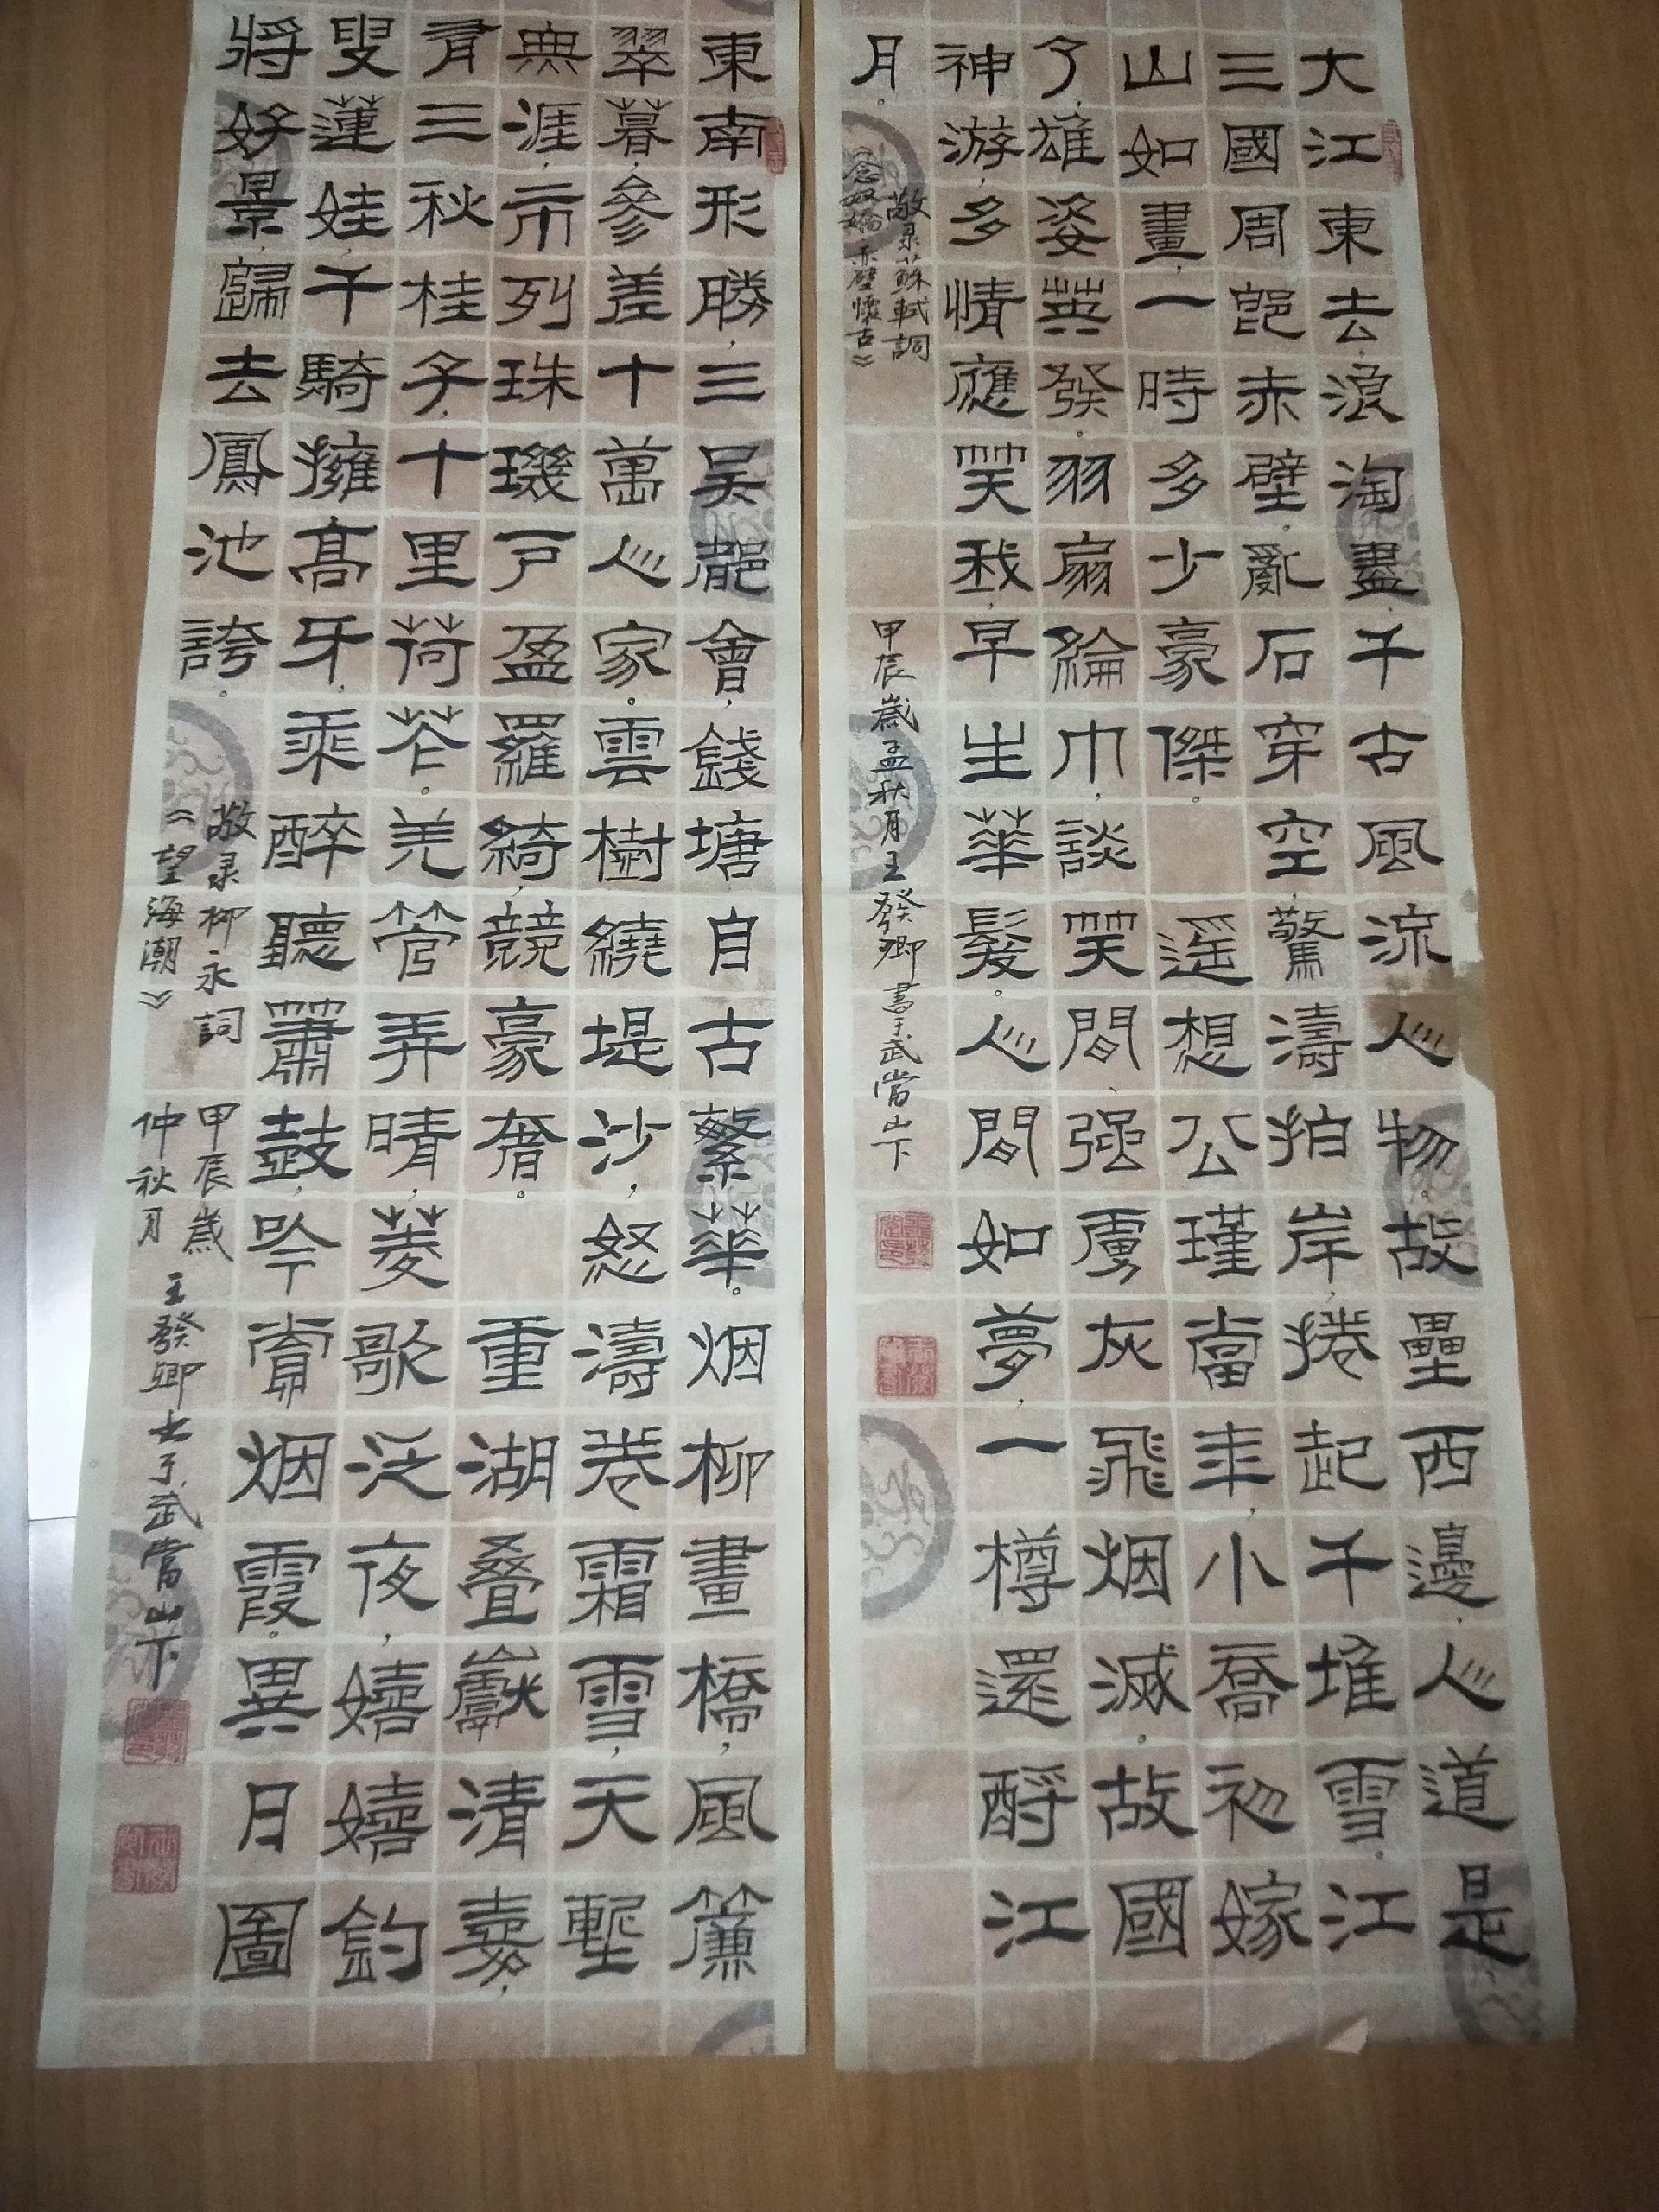 大江東去,浪淘盡,千古風流人物。故壘西邊,人道是
三國周郎赤壁。亂石穿空,驚濤拍岸,捲起千堆雪。江
山如畫,一時多少豪傑。 遥想公瑾當年,小喬初嫁
了,雄姿英發。羽扇綸巾,談笑間、强虜灰飛烟滅。故國
神游,多情應笑我,早生華髮。人間如夢,一樽還酹江
月。
敬录蘇軾詞
《念奴嬌 赤壁懷古》
甲辰歲孟秋月王發卿書于武當山下
東南形勝,三吴都會,錢塘自古繁華。烟柳畫橋,風簾
翠暮,參差十萬人家。雲樹繞堤沙,怒濤卷霜雪,天塹
無涯,市列珠璣户盈羅綺,競豪奢。 重湖叠巘清嘉,
有三秋桂子,十里荷花。羌管弄晴,菱歌泛夜,嬉嬉釣
叟蓮娃,千騎擁高牙,乘醉聽簫鼓,吟賞烟霞。異日圖
將好景,歸去鳳池誇。
敬录柳永詞
《望海潮》
甲辰歲
仲秋月
王發卿书于武當山下